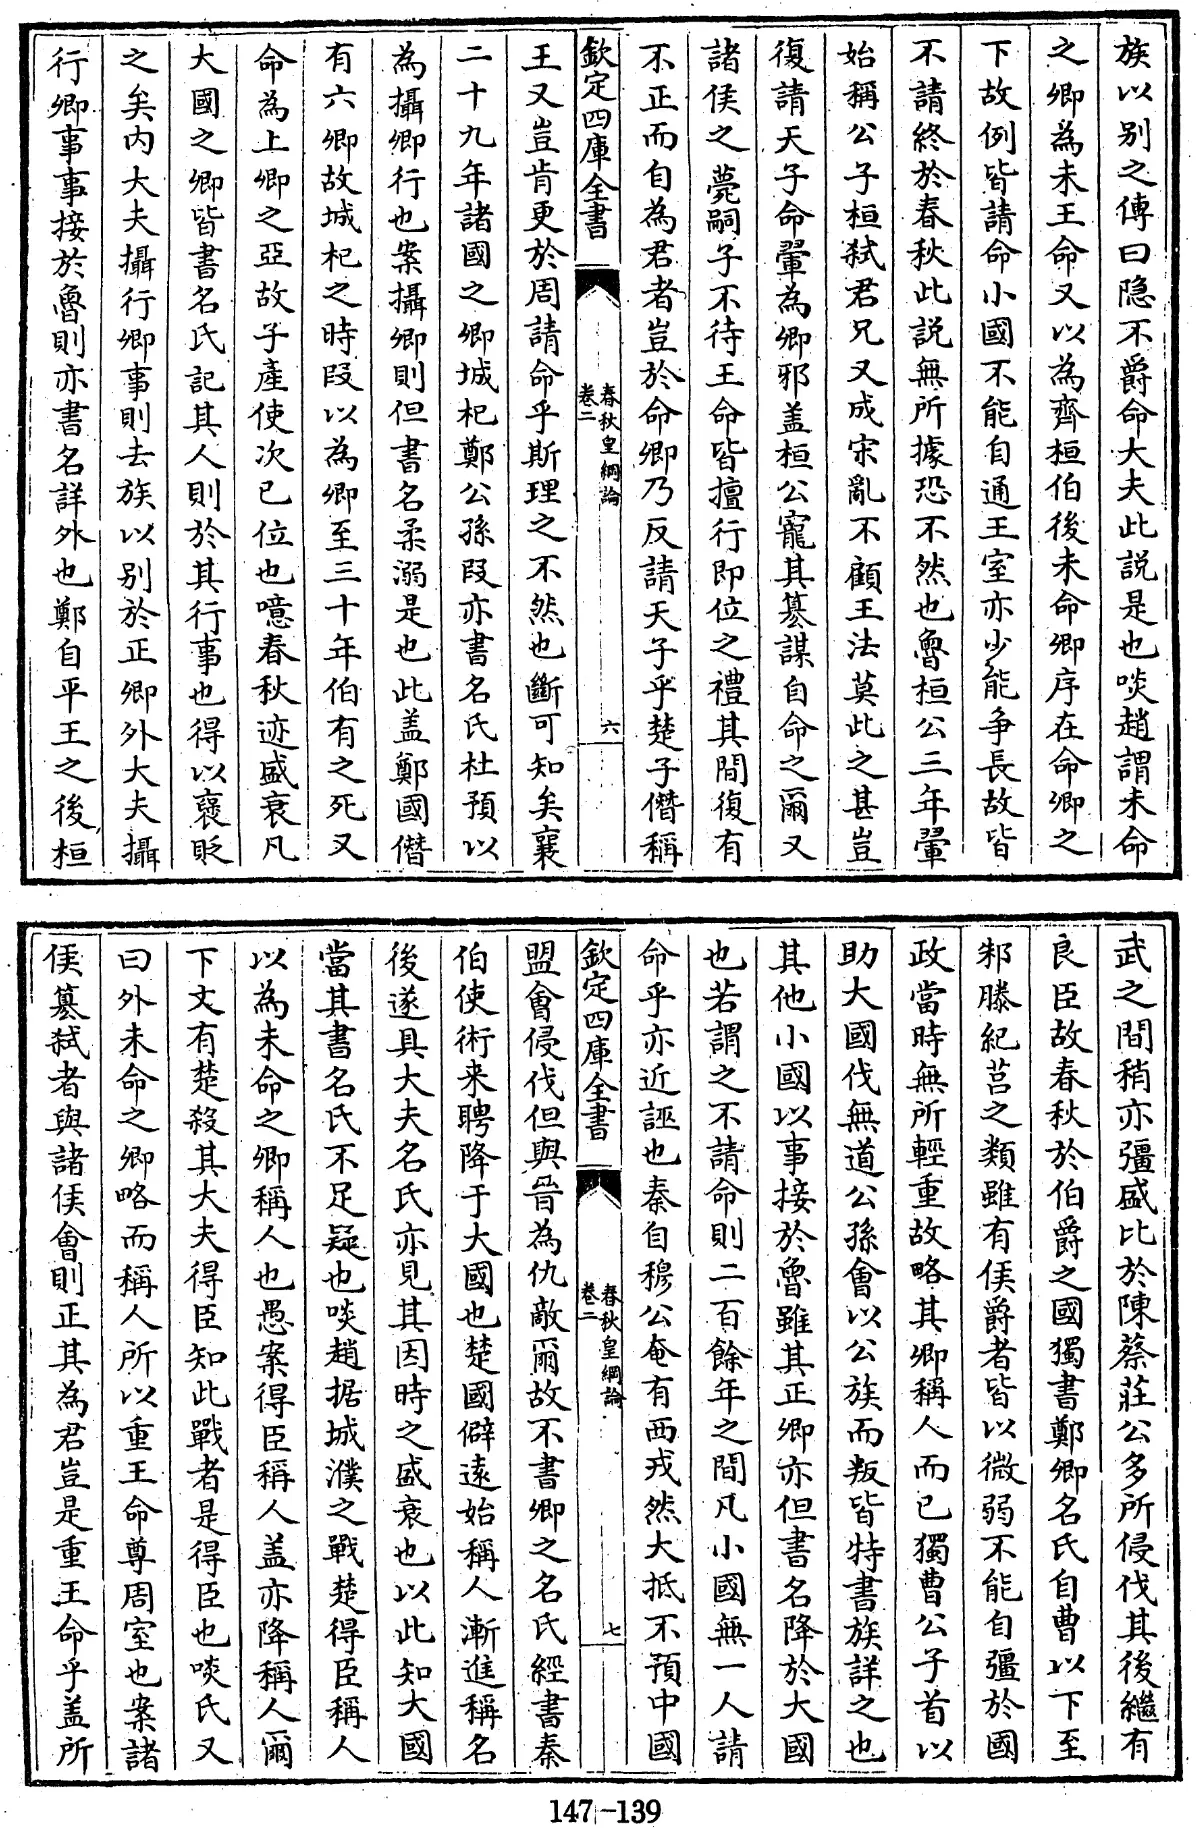 族以别之傳曰隱不爵命大夫此説是也啖趙謂未命
之卿為未王命又以為齊桓伯後未命卿序在命卿之
下故例皆請命小國不能自通王室亦少能争長故皆
不請終於春秋此説無所據恐不然也魯桓公三年翬
始稱公子桓弑君兄又成宋亂不顧王法莫此之甚豈
復請天子命翬為卿邪盖桓公寵其簒謀自命之爾又
諸侯之薨嗣子不待王命皆擅行即位之禮其間復有
不正而自為君者豈於命卿乃反請天子乎楚子僭稱
欽定四庫全書
春秋皇綱論
卷二
六
王又豈肯更於周請命乎斯理之不然也斷可知矣襄
二十九年諸國之卿城杞鄭公孫段亦書名氏杜預以
為攝卿行也案攝卿則但書名柔溺是也此盖鄭國僭
有六卿故城杞之時段以為卿至三十年伯有之死又
命為上卿之亞故子產使次已位也噫春秋迹盛衰凡
大國之卿皆書名氏記其人則於其行事也得以襃貶
之矣内大夫攝行卿事則去族以别於正卿外大夫攝
行卿事事接於魯則亦書名詳外也鄭自平王之後桓
武之間稍亦彊盛比於陳蔡莊公多所侵伐其後繼有
良臣故春秋於伯爵之國獨書鄭卿名氏自曹以下至
邾滕紀莒之類雖有侯爵者皆以微弱不能自彊於國
政當時無所輕重故略其卿稱人而已獨曹公子首以
助大國伐無道公孫會以公族而叛皆特書族詳之也
其他小國以事接於魯雖其正卿亦但書名降於大國
也若謂之不請命則二百餘年之間凡小國無一人請
命乎亦近誣也秦自穆公奄有西戎然大抵不預中國
欽定四庫全書
春秋皇綱論
卷二
七
盟會侵伐但與晉為仇敵爾故不書卿之名氏經書秦
伯使術来聘降于大國也楚國僻遠始稱人漸進稱名
後遂具大夫名氏亦見其因時之盛衰也以此知大國
當其書名氏不足疑也啖趙据城濮之戰楚得臣稱人
以為未命之卿稱人也愚案得臣稱人盖亦降稱人爾
下文有楚殺其大夫得臣知此戰者是得臣也啖氏又
曰外未命之卿略而稱人所以重王命尊周室也案諸
侯簒弑者與諸侯會則正其為君豈是重王命乎盖所
147-139